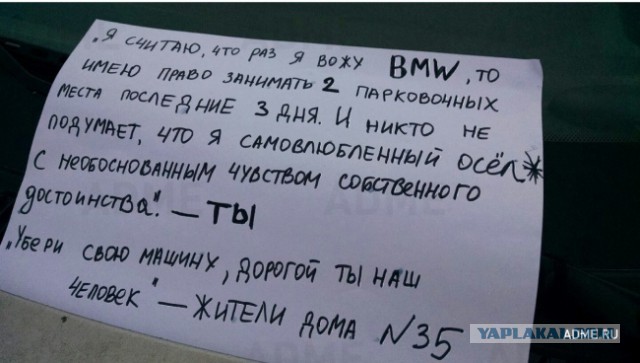 „Я СЧИТАЮ, ЧТО РАЗ Я ВОЖУ BMW, ТО
ИМЕЮ ПРАВО ЗАНИМАТЬ 2 ПАРКОВОЧНЫХ
МЕСТА ПОСЛЕДНИЕ 3 ДНЯ. И НИКТО НЕ
ПОДУМАЕТ, ЧТО Я САМОВЛЮБЛЕННЫЙ ОСЁЛ*
С НЕОБОСНОВАННЫМ ЧУВСТВОМ СОБСТВЕННОГО
ДОСТОИНСТВА." – ТЫ
„УБЕРИ СВОЮ МАШИНУ, ДОРОГОЙ ТЫ НАШ
ЧЕЛОВЕК" – ЖИТЕЛИ ДОМА N35
ADME
ADME
YAPLAKAL
ADME.RU